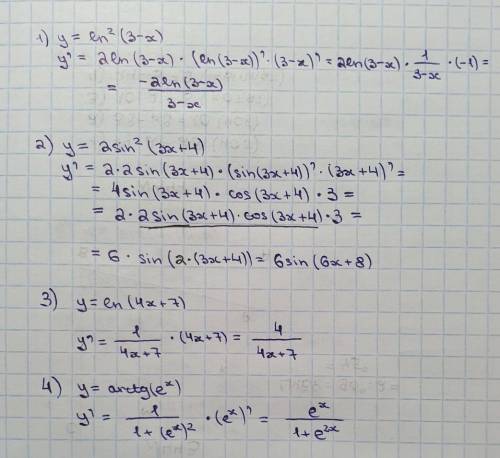 1) y = ln² (3-x)
y' = 2ln(3-x) · (ln(3-x))' · (3-x)' = 2ln(3-x) · 1/(3-x) · (-1) =
= -2ln(3-x)/(3-x)
2) y = 2sin² (3x+4)
y' = 2·2sin(3x+4) · (sin(3x+4))' · (3x+4)' =
= 4sin(3x+4) · cos(3x+4) · 3 =
= 2·2sin(3x+4)·cos(3x+4)·3 =
= 6 · sin(2·(3x+4)) = 6sin(6x+8)
3) y = ln(4x+7)
y' = 1/(4x+7) · (4x+7) = 4/(4x+7)
4) y = arctg(eˣ)
y' = 1/(1+(eˣ)²) · (eˣ)' = eˣ/(1+e²ˣ)